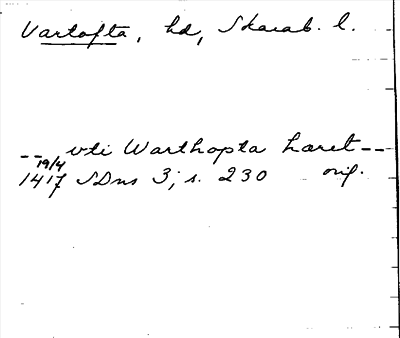 Vartofta, hd, Skarab. l.
-- vti Warthopta häret --
19/4
1417 SDns 3, s. 230 orig.